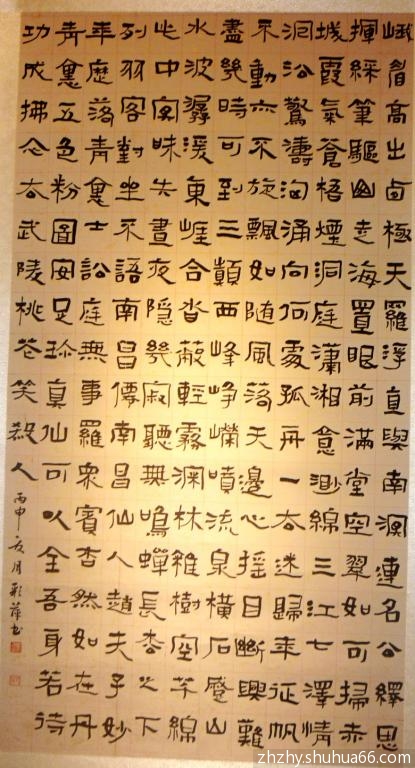 峨眉高出西極天羅浮直與南溟連名公繹思
揮綵筆驅山走海置眼前滿堂空翠如可掃赤
城霞氣蒼梧煙洞庭瀟湘意渺綿三江七澤情
洄沿驚濤洶涌向何處孤舟一去迷歸年征帆
不動亦不旋飄如随風落天邊心搖目斷興難
盡幾時可到三顛西峰崢嶸噴流泉橫石蹙山
水波潺湲東崖合沓蔽輕霧深林雜樹空芊綿
此中冥昧失晝夜隐幾寂聽無鳴蟬長松之下
列羽客對坐不語南昌僊南昌仙人趙夫子妙
年歷落青裏士訟庭無事羅眾賓杳然如在丹
青裏五色粉圖安足珍真仙可以全吾身若待
功成拂衣去武陵桃花笑殺人
丙申夏月彩萍書
zhzhy.shuhua66.com